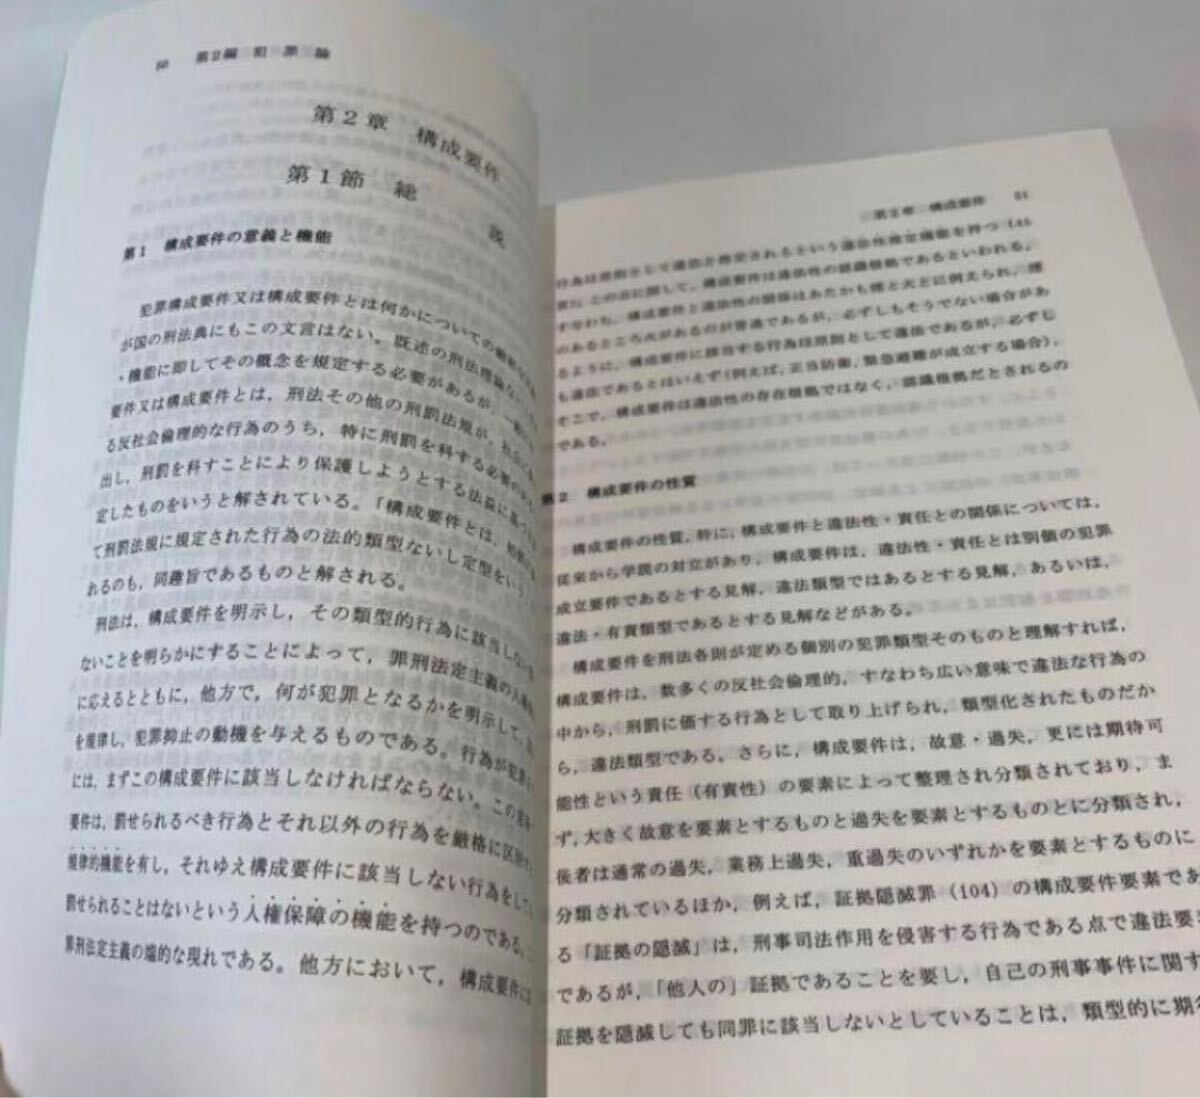 50 第2編 犯罪論
第2章 構成要件
第1節 総説
第1 構成要件の意義と機能
犯罪構成要件又は構成要件とは何かについての
が国の刑法典にもこの文言はない。既述の刑法理論
・機能に即してその概念を規定する必要があるが,
要件又は構成要件とは,刑法その他の刑罰法規が,
る反社会倫理的な行為のうち,特に刑罰を科する必要
出し,刑罰を科すことにより保護しようとする法益に基づ
定したものをいうと解されている。「構成要件とは,
て刑罰法規に規定された行為の法的類型ないし定型をいう
れるのも,同趣旨であるものと解される。
刑法は,構成要件を明示し,その類型的行為に該当しない
ないことを明らかにすることによって,罪刑法定主義の人権
に応えるとともに,他方で,何が犯罪となるかを明示して,
を規律し,犯罪抑止の動機を与えるものである。行為が犯罪
には,まずこの構成要件に該当しなければならない。この
要件は,罰せられるべき行為とそれ以外の行為を厳格に区別
規律的機能を有し,それゆえ構成要件に該当しない行為をして
罰せられることはないという人権保障の機能を持つのである。
罪刑法定主義の端的な現れである。他方において,構成要件に
第2章 構成要件 51
行為は原則として違法と推定されるという違法性推定機能を持つ(45
頁)。この点に関して,構成要件は違法性の認識根拠であるといわれる。
すなわち,構成要件と違法性の関係はあたかも煙と火とに例えられ,煙
のあるところ火があるのが普通であるが,必ずしもそうでない場合があ
るように,構成要件に該当する行為は原則として違法であるが,必ずし
も違法であるとはいえず(例えば,正当防衛,緊急避難が成立する場合),
そこで,構成要件は違法性の存在根拠ではなく,認識根拠だとされるの
である。
第2 構成要件の性質
構成要件の性質,特に,構成要件と違法性・責任との関係については,
従来から学説の対立があり,構成要件は,違法性・責任とは別個の犯罪
成立要件であるとする見解,違法類型ではあるとする見解,あるいは,
違法・有責類型であるとする見解などがある。
構成要件を刑法各則が定める個別の犯罪類型そのものと理解すれば,
構成要件は,数多くの反社会倫理的,すなわち広い意味で違法な行為の
中から,刑罰に値する行為として取り上げられ,類型化されたものだか
ら,違法類型である。さらに,構成要件は,故意・過失,更には期待可
能性という責任(有責性)の要素によって整理され分類されており,ま
ず,大きく故意を要素とするものと過失を要素とするものとに分類され,
後者は通常の過失,業務上過失,重過失のいずれかを要素とするものに
分類されているほか,例えば,証拠隠滅罪(104)の構成要件要素であ
る「証拠の隠滅」は,刑事司法作用を侵害する行為である点で違法要
であるが,「他人の」証拠であることを要し,自己の刑事事件に関す
証拠を隠滅しても同罪に該当しないとしていることは,類型的に期待